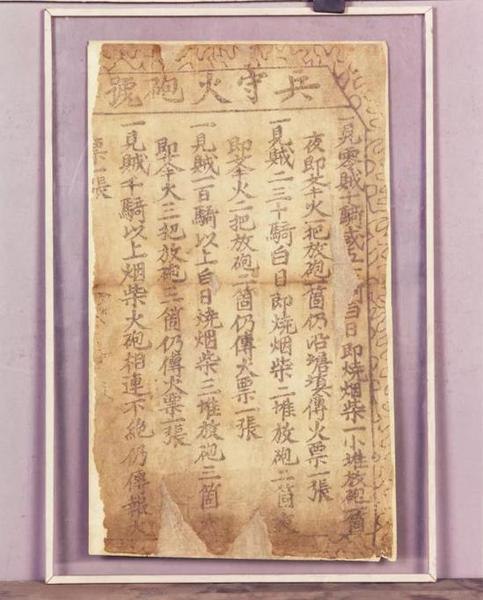 兵守火砲號
一見零賊十騎或 白日即燒烟柴一小堆放砲一箇
夜即 火一把放砲一箇仍 傳火票一張
一見賊二三十騎白日即燒烟柴二堆放砲二箇夜
即 火二把放砲二箇仍傳火票一張
一見賊一百騎以上白日燒烟柴三堆放砲三箇
即 火三把放砲三箇仍傳火票一張
一見賊千騎以上烟柴火砲相連不絶仍傳報火
票一張